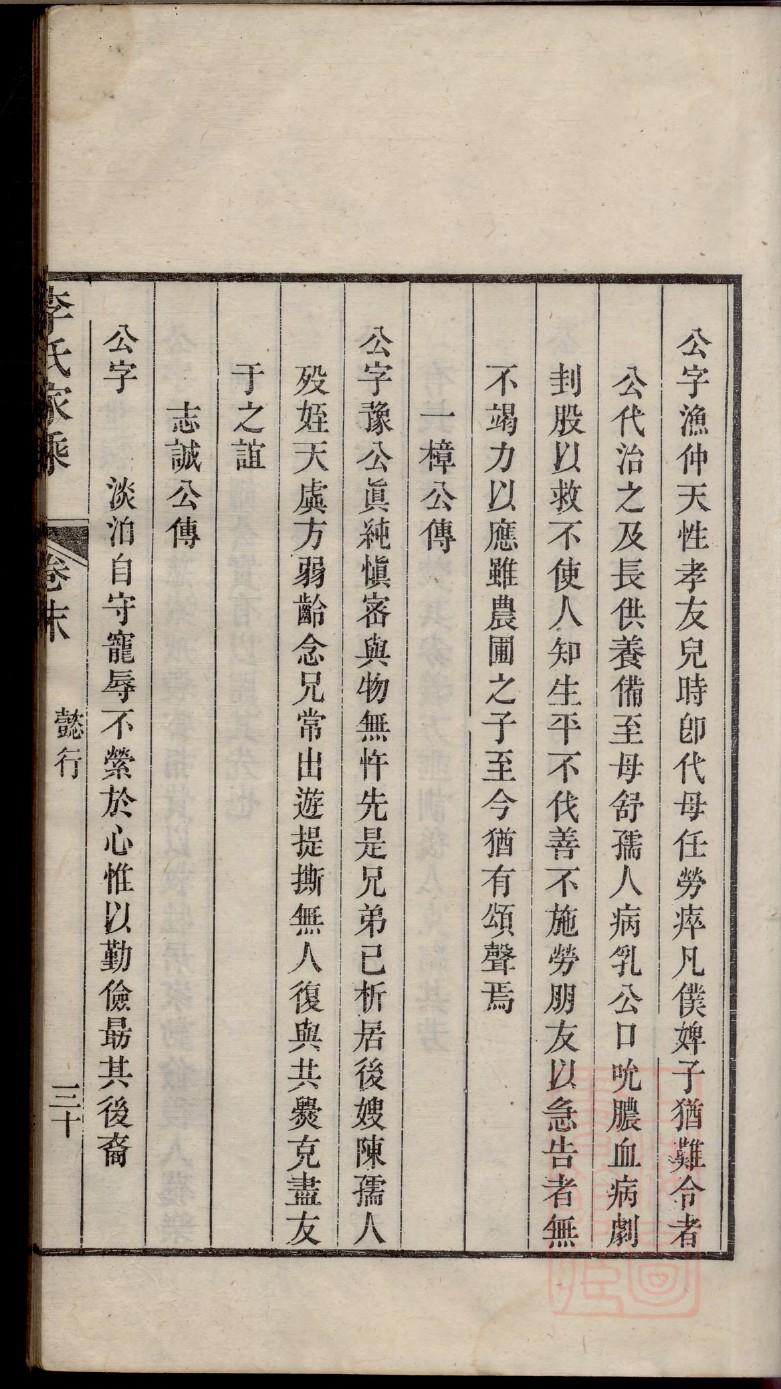 公字漁仲天性孝友兒時卽代母任勞瘁凡僕婢子猶難令者
公代治之及長供養備至母舒孺人病乳公口吮膿血病劇
刲股以救不使人知生平不伐善不施勞朋友以急告者無
不竭力以應雖農圃之子至今猶有頌聲焉
一樟公傳
公字豫公眞純愼密與物無忤先是兄弟已析居後嫂陳孺人
歿姪天虞方弱齡念兄常出遊提撕無人復與共爨克盡友
于之誼
志誠公傳
公字　　淡泊自守寵辱不縈於心惟以勤儉最其後裔
李氏家乘　卷末　懿行　三十